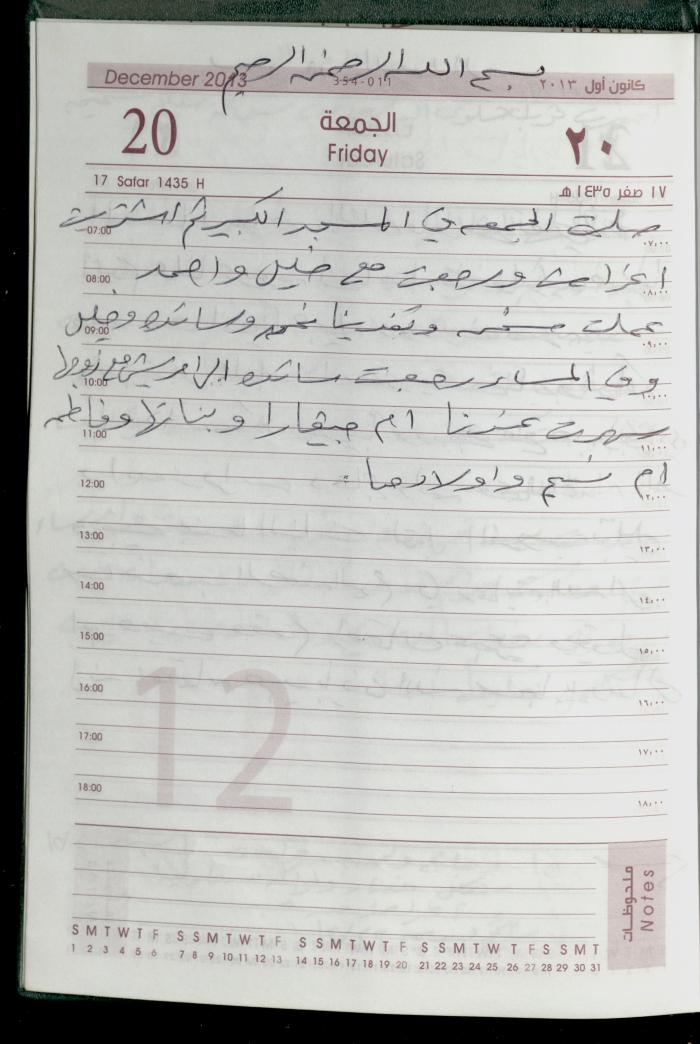 بسم الله الرحمن الرحيم
December 2013 354-011 كانون أول ٢٠١٣
20 الجمعة ٢٠
Friday
17 Safar 1435 H ١٧ صفر ١٤٣٥ هـ
صليت الجمعه في المسجد الكبير ثم اشتريت
07:00 ٠٧,٠٠
اغراض ورجعت مع خليل واحمد
08:00 ٠٨,٠٠
عملت وتغدينا نحن وسائده وخليل
09:00 ٠٩,٠٠
وفي المساء رجعت سائده الى مع زوجها
10:00 ١٠,٠٠
سهرت عندنا ام وبناتها وفاطمه
11:00 ١١,٠٠
ام واولادها
12:00 ١٢,٠٠
13:00 ١٣,٠٠
14:00 ١٤,٠٠
15:00 ١٥,٠٠
16:00 ١٦,٠٠
12
17:00 ١٧,٠٠
18:00 ١٨,٠٠
ملحوظات
Notes
S M T W T F S S M T W T F S S M T W T F S S M T W T F S S M T
1 2 3 4 5 6 7 8 9 10 11 12 13 14 15 16 17 18 19 20 21 22 23 24 25 26 27 28 29 30 31